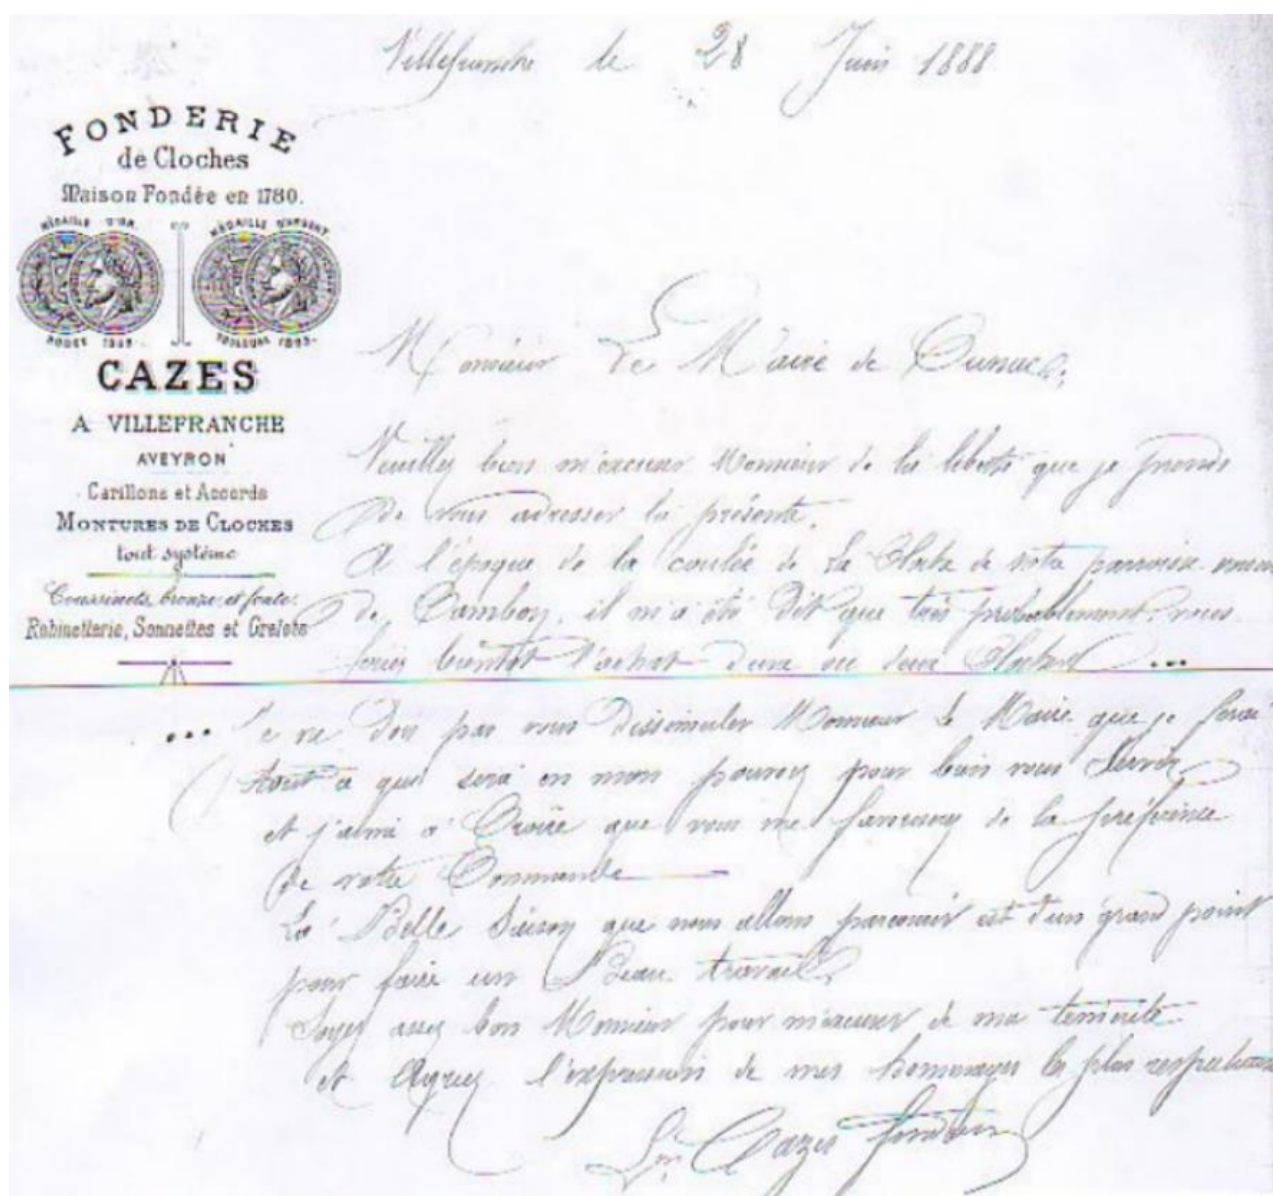 Villefranche le 28 Juin 1888
FONDERIE
de Cloches
Maison Fondée en 1780.
MÉDAILLE D'OR
MÉDAILLE D'ARGENT
RODEZ
TOULOUSE
CAZES
A VILLEFRANCHE
AVEYRON
Carillons et Accords
MONTURES DE CLOCHES
tout système
Coussinets bronze et fonte.
Robinetterie, Sonnettes et Grelots
Monsieur Le Maire de Cunac.
Veuillez bien m'excuser Monsieur de la liberté que je prends
de vous adresser la présente.
A l'époque de la coulée de la Cloche de votre paroisse
de Cambon, il m'a été dit que très probablement, vous
feriez bientôt l'achat d'une ou deux Cloches ...
... Je ne dois pas vous dissimuler Monsieur le Maire que je ferai
tout ce que sera en mon pouvoir pour bien vous Servir
et j'aime à Croire que vous me de la préférence
de votre Commande
La Belle Saison que nous allons parcourir est d'un grand point
pour faire un Beau travail.
Soyez assez bon Monsieur pour m'excuser de ma témérité
et Agréez l'expression de mes hommages les plus respectueux
Cazes fondeur